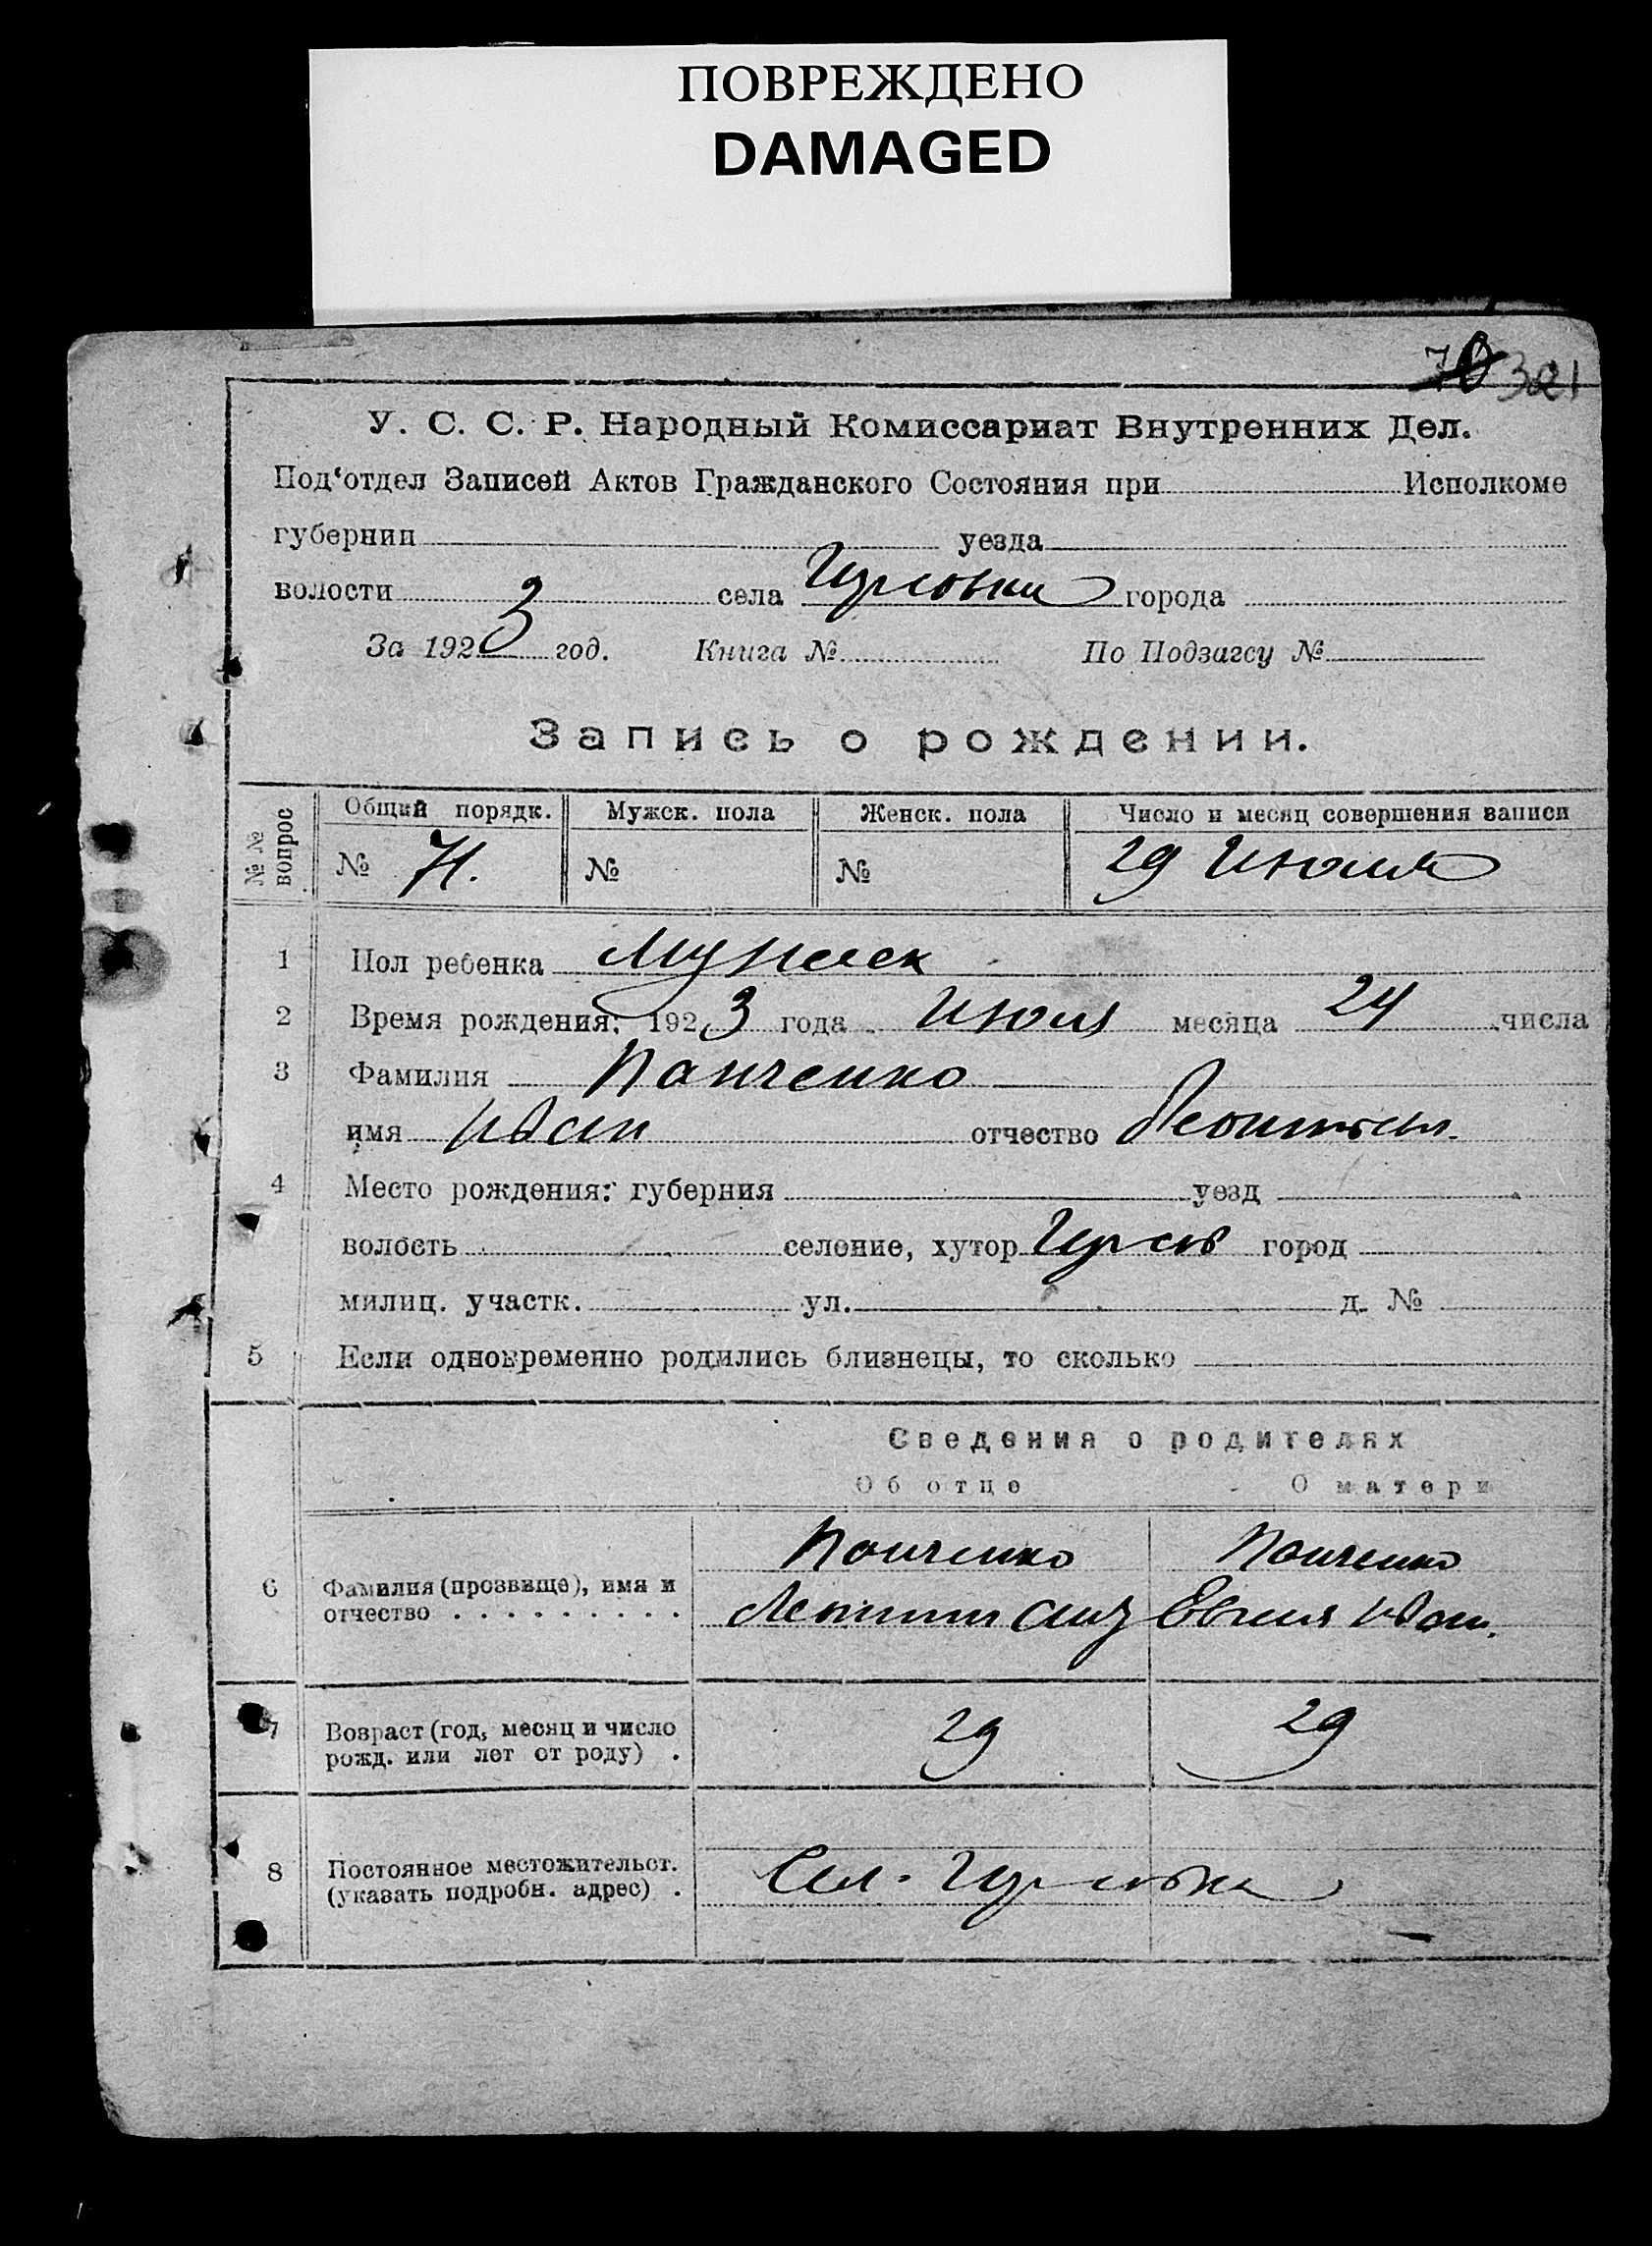 ПОВРЕЖДЕНО
DAMAGED
70 321
У. С. С. Р. Народный Комиссариат Внутренних Дел.
Под‘отдел Записей Актов Гражданского Состояния при Исполкоме
губернии уезда
волости села города
За 1923 год. Книга № По Подзагсу №
Запись о рождении.
№ № вопрос Общий порядк. Мужск. пола Женск. пола Число и месяц совершения записи
№ 71. № № 29 Июля
1 Пол ребенка Мужеск
2 Время рождения: 1923 года Июля месяца 24 числа
3 Фамилия Панченко
имя Иван отчество
4 Место рождения: губерния уезд
волость селение, хутор город
милиц. участк. ул. д. №
5 Если одновременно родились близнецы, то сколько
Сведения о родителях
Об отце О матери
Панченко Панченко
6 Фамилия (прозвище), имя и
отчество Иван.
7 Возраст (год, месяц и число
рожд. или лет от роду) . 29 29
8 Постоянное местожительст.
(указать подробн. адрес) . Сел.